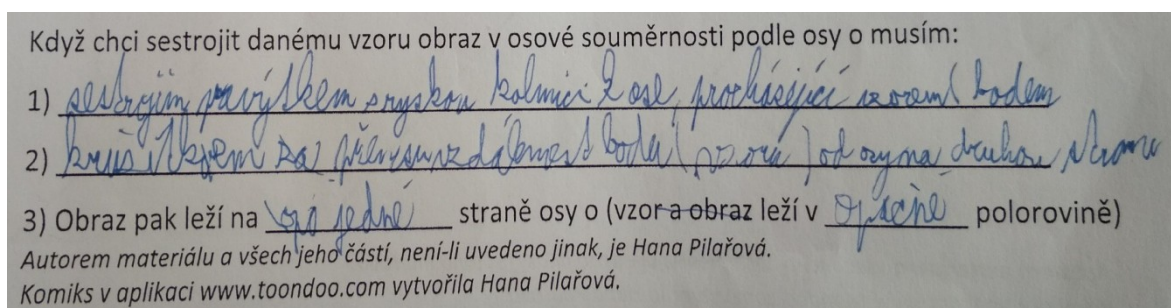 Když chci sestrojit danému vzoru obraz v osové souměrnosti podle osy o musím:
1) sestrojím pravýtkem s ryskou kolmici k ose, procházející vzorem bodem
2) kružítkem vzdálenost bodu (vzoru) od osy na druhou stranu
3) Obraz pak leží na jedné straně osy o (vzor a obraz leží v opačné polorovině)
Autorem materiálu a všech jeho částí, není-li uvedeno jinak, je Hana Pilařová.
Komiks v aplikaci www.toondoo.com vytvořila Hana Pilařová.